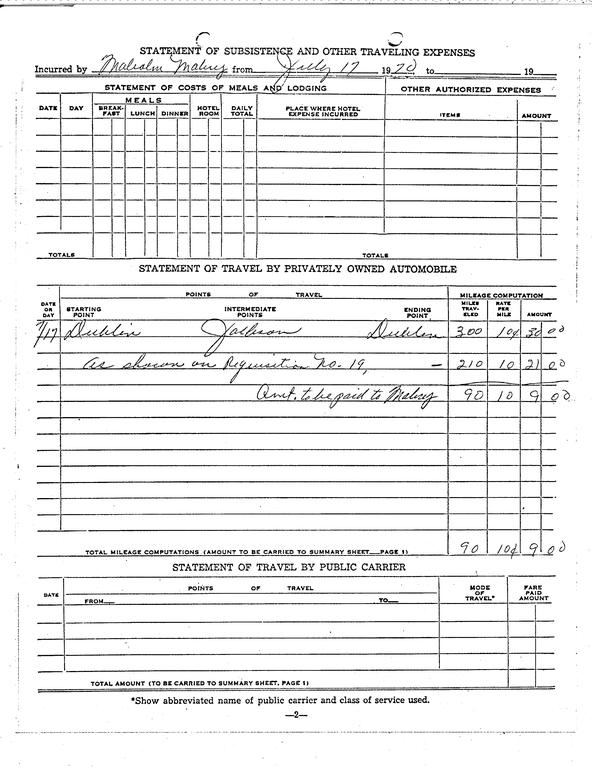 STATEMENT OF SUBSISTENCE AND OTHER TRAVELING EXPENSES
Incurred by Malcolm Mabry from July 17 1970 to 19
STATEMENT OF COSTS OF MEALS AND LODGING OTHER AUTHORIZED EXPENSES
DATE DAY MEALS BREAK-FAST LUNCH DINNER HOTEL ROOM DAILY TOTAL PLACE WHERE HOTEL EXPENSE INCURRED ITEMS AMOUNT
TOTALS TOTALS
STATEMENT OF TRAVEL BY PRIVATELY OWNED AUTOMOBILE
POINTS OF TRAVEL MILEAGE COMPUTATION
DATE OR DAY STARTING POINT INTERMEDIATE POINTS ENDING POINT MILES TRAV-ELED RATE PER MILE AMOUNT
7/17 Dublin Jackson Dublin 300 10¢ 30 00
As shown on Requisition No. 19, – 210 10 21 00
Amt. to be paid to Mabry 90 10 9 00
TOTAL MILEAGE COMPUTATIONS (AMOUNT TO BE CARRIED TO SUMMARY SHEET—PAGE 1) 90 10¢ 9 00
STATEMENT OF TRAVEL BY PUBLIC CARRIER
DATE POINTS OF TRAVEL MODE OF TRAVEL* FARE PAID AMOUNT
FROM— TO—
TOTAL AMOUNT (TO BE CARRIED TO SUMMARY SHEET, PAGE 1)
*Show abbreviated name of public carrier and class of service used.
—2—